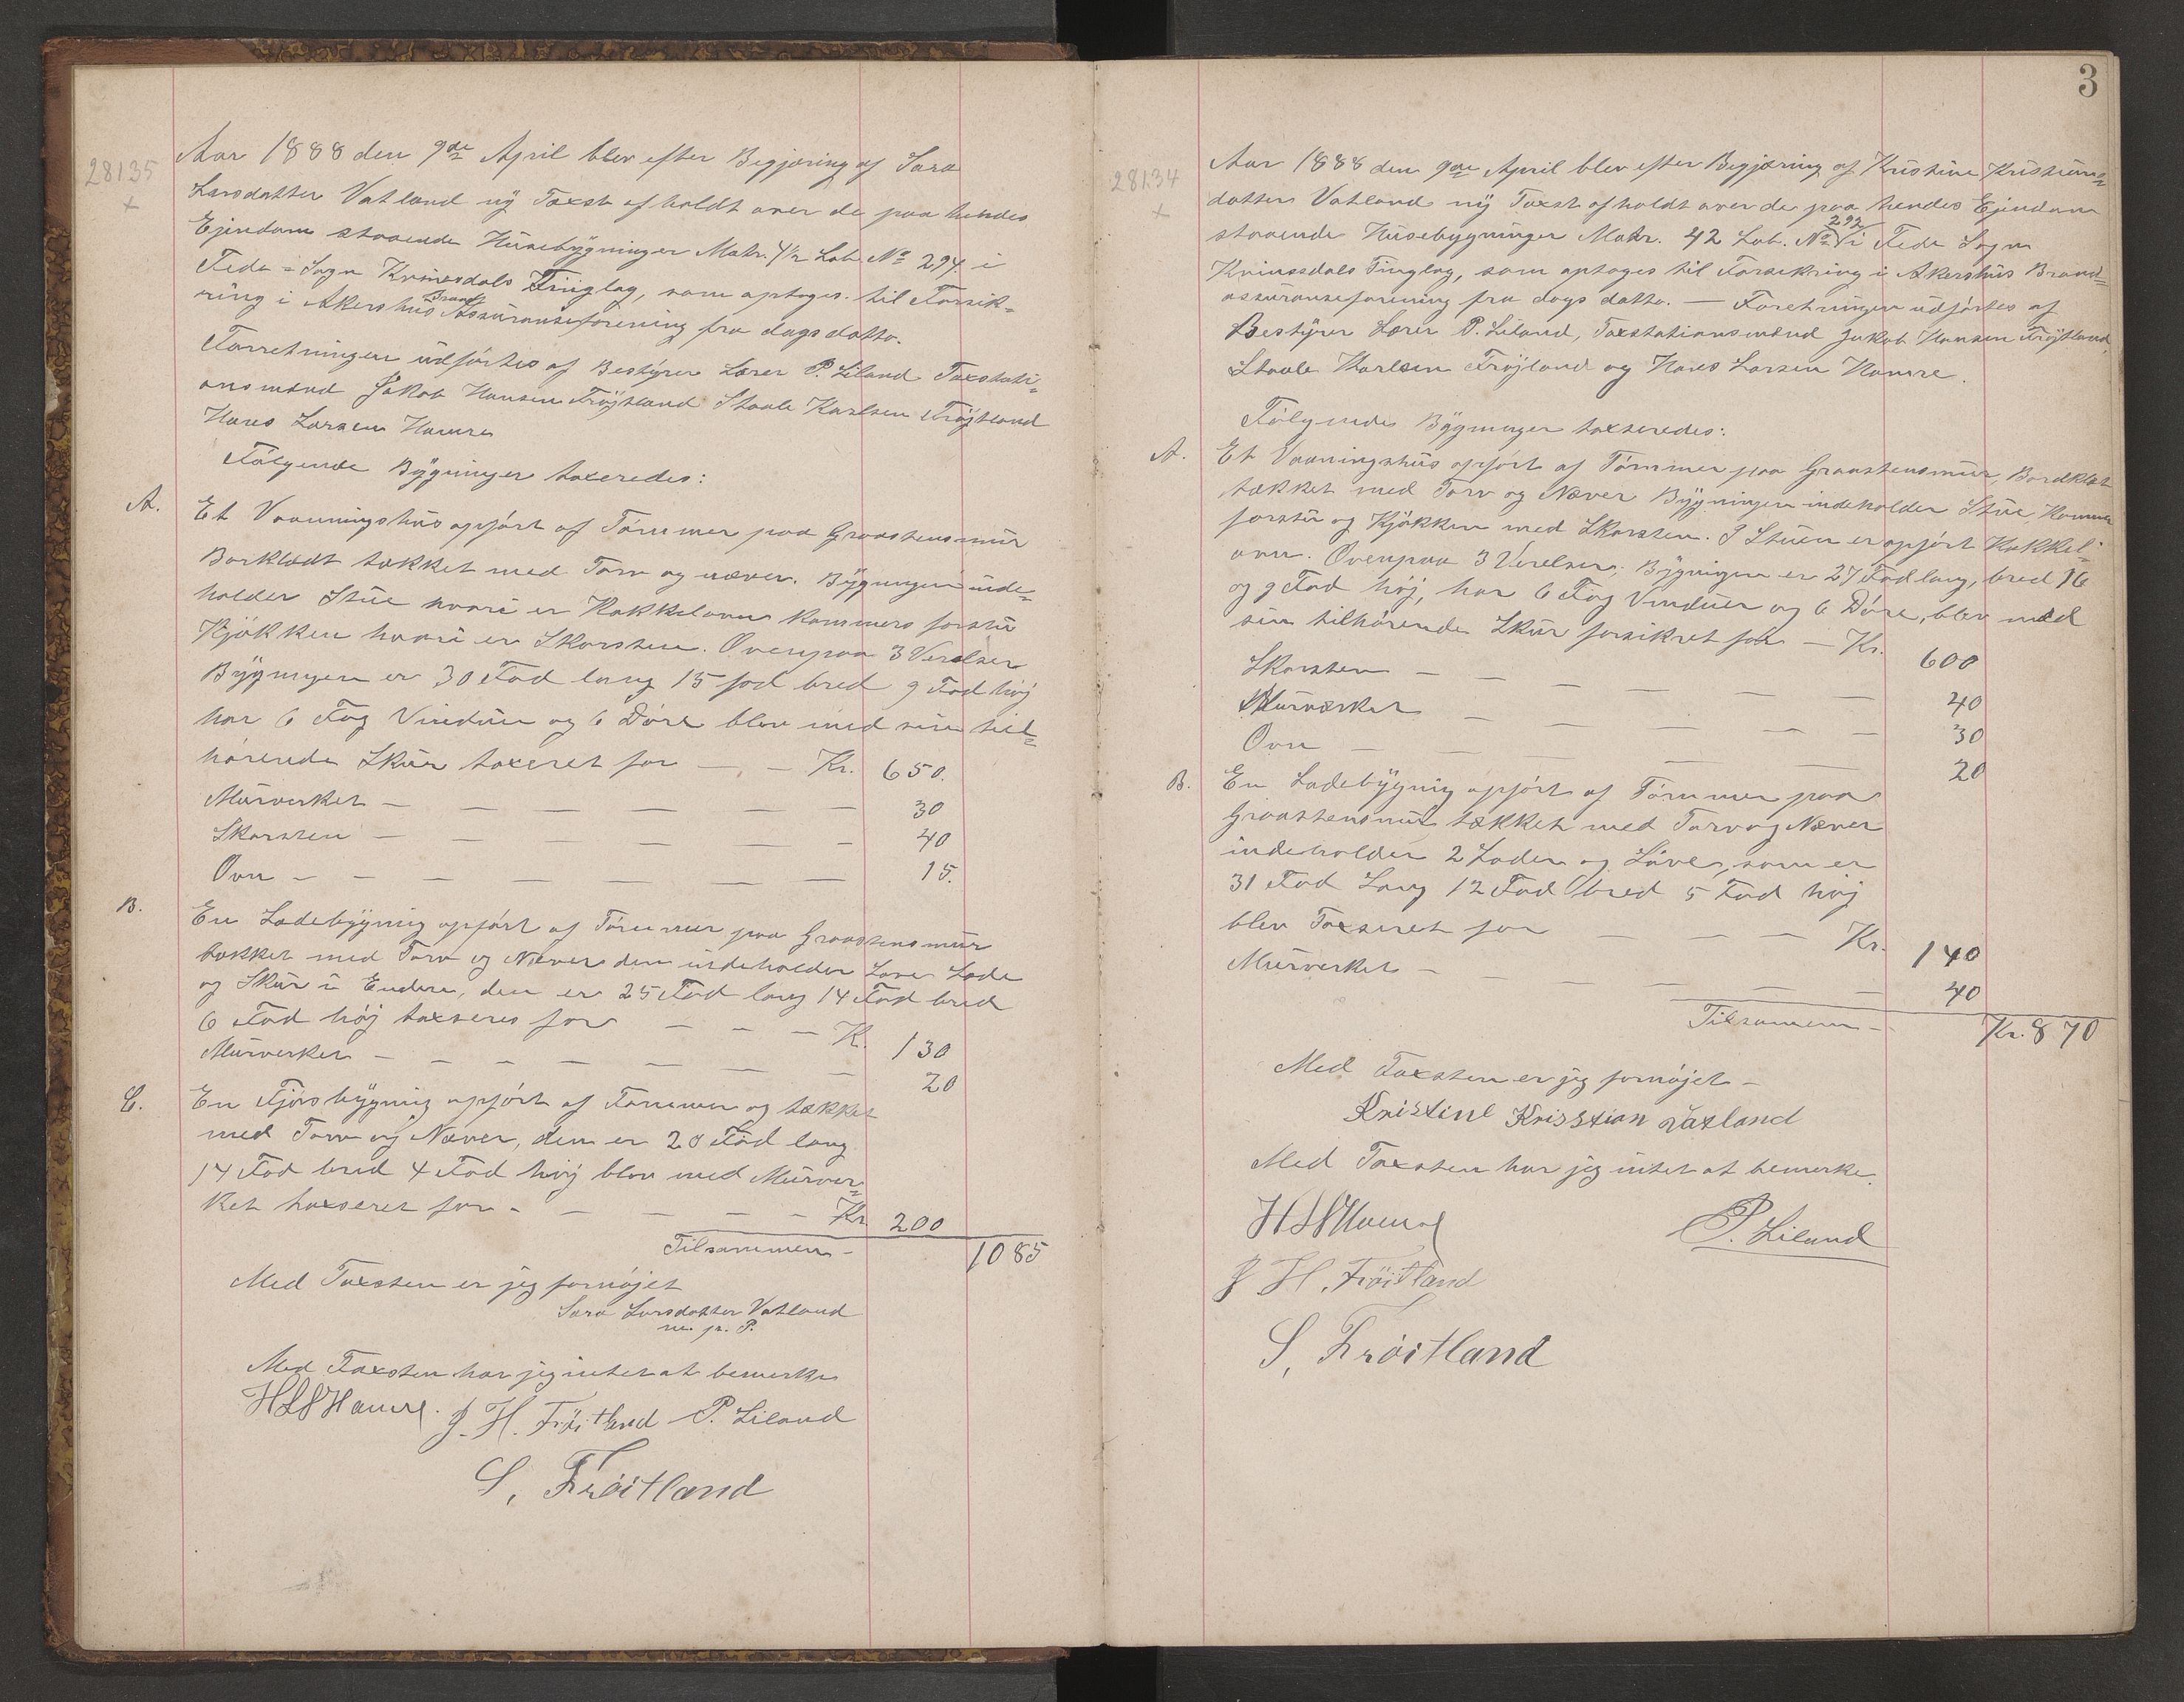 28135
+
Aar 1888 den 9de April blev efter Begjæring af Sara
Larsdatter Vatland ny Taxst afholdt over de paa hendes
Ejendom staaende Husebygninger Matr. 42 Lob No 294. i
Feda = Sogn Kvinesdals Tinglag, som optages til Forsik=
ring i Akershus Brand Assuranseforening fra dags datto.
Forretningen udförtes af Bestyrer Lærer P. Liland Taxstati=
onsmænd Jakob Hansen Fröjtland Staale Karlsen Fröjtland
Hans Larsen Hamre
Fölgende Bygninger taxeredes:
A.
Et Vaaningshus opfört af Tömmer paa Graastensmur
Borklædt tækket med Torv og næver. Bygningen inde=
holder Stue hvori er Kakkelovn Kammers forstu
Kjökken hvori er Skorsten. Ovenpaa 3 Verelser
Bygningen er 30 Fod lang 15 fod bred 9 Fod höj
har 6 Fag Vinduer og 6 Döre blev med sin til=
hörende Skur taxeret for — — Kr. 650.
Murverket — — — — — — — 30
Skorsten — — — — — — 40
Ovn — — — — — — — 15.
B.
En Ladebygning opfört af Tömmer paa Graastensmur
tækket med Torv og Næver den indeholder Lave Lade
og Skur i Enderne, den er 25 Fod lang 14 Fod bred
6 Fod höj taxseres for — — — K. 130
Murverket — — — — — — — 20
C.
En Fjösbygning opfört af Tömmer og tækket
med Torv og Næver, den er 20 Fod lang
14 Fod bred 4 Fod höj blev med Murver=
ket taxseret for — — — — — Kr 200
Tilsammen — 1085
Med Taxsten er jeg fornöjet
Sara Larsdatter Vatland
m. p. P.
Med Taxsten har jeg intet at bemerke
H L S Hamre. J. H. Fröitland P. Liland
S, Fröitland
3
28134
+
Aar 1888 den 9de April blev efter Begjæring af Kristine Kristians=
datter Vatland ny Taxst afholdt over de paa hendes Ejendom
staaende Husebygninger Matr. 42 Lob. No 292 i Feda Sogn
Kvinesdals Tinglag, som optages til Forsikring i Akershus Brand=
assuranseforening fra dags datto. — Foretningen udförtes af
Bestyrer Lærer P. Liland, Taxstationsmænd Jakob Hansen Fröjtland,
Staale Karlsen Fröjland og Hans Larsen Hamre.
Fölgende Bygninger taxseredes:
A.
Et Vaaningshus opfört af Tömmer paa Graastensmur, Bordklæt
tækket med Torv og Næver Bygningen indeholder Stue, Kammer
forstu og Kjökken med Skorsten. I Stuen er opfört Kakkel=
ovn. Ovenpaa 3 Verelser; Bygnigen er 27 Fod lang, bred 16
og 9 Fod höj, har 6 Fag Vinduer og 6 Döre, blev med
sin tilhörende Skur forsikret for — Kr. 600
Skorsten — — — — — — — 40
Murværket — — — — — — 30
Ovn — — — — — — — 20
B.
En Ladebygnig opfört af Tömmer paa
Graastensmur tækket med Torv og Næver
indeholder 2 Lader og Löve, som er
31 Fod Lang 12 Fod bred 5 Fod höj
blev Taxseret for — — — Kr. 140
Murverket — — — — — — 40
Tilsammen — Kr. 870
Med Taxsten er jeg fornöjet —
Kristine Krisstian Vatland
Med Taxsten har jeg intet at bemerke.
H L S Hamre
P. Liland
J H. Fröitland
S, Fröitland